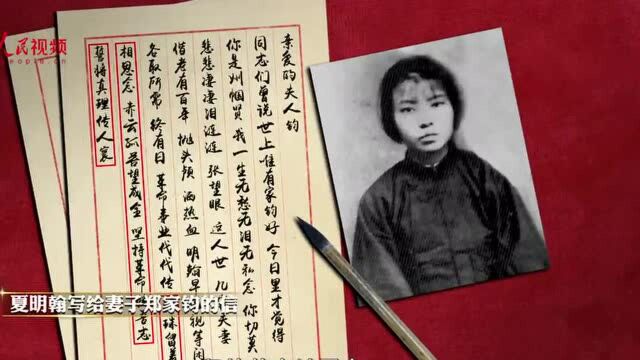 人民视频
people.cn
亲爱的夫人钧
同志们曾说世上惟有家钧好 今日里才觉得
你是巾帼贤 我一生无愁无泪无私念 你切莫
悲悲凄凄泪涟涟 张望眼 这人世 几 夫妻
偕老有百年 抛头颅 洒热血 明翰早 视等闲
各取所需 终有日 革命事业代代传 珠留着
相思念 赤云孤苦望成全 坚持革命 吾志
誓将真理传人寰
夏明翰写给妻子郑家钧的信